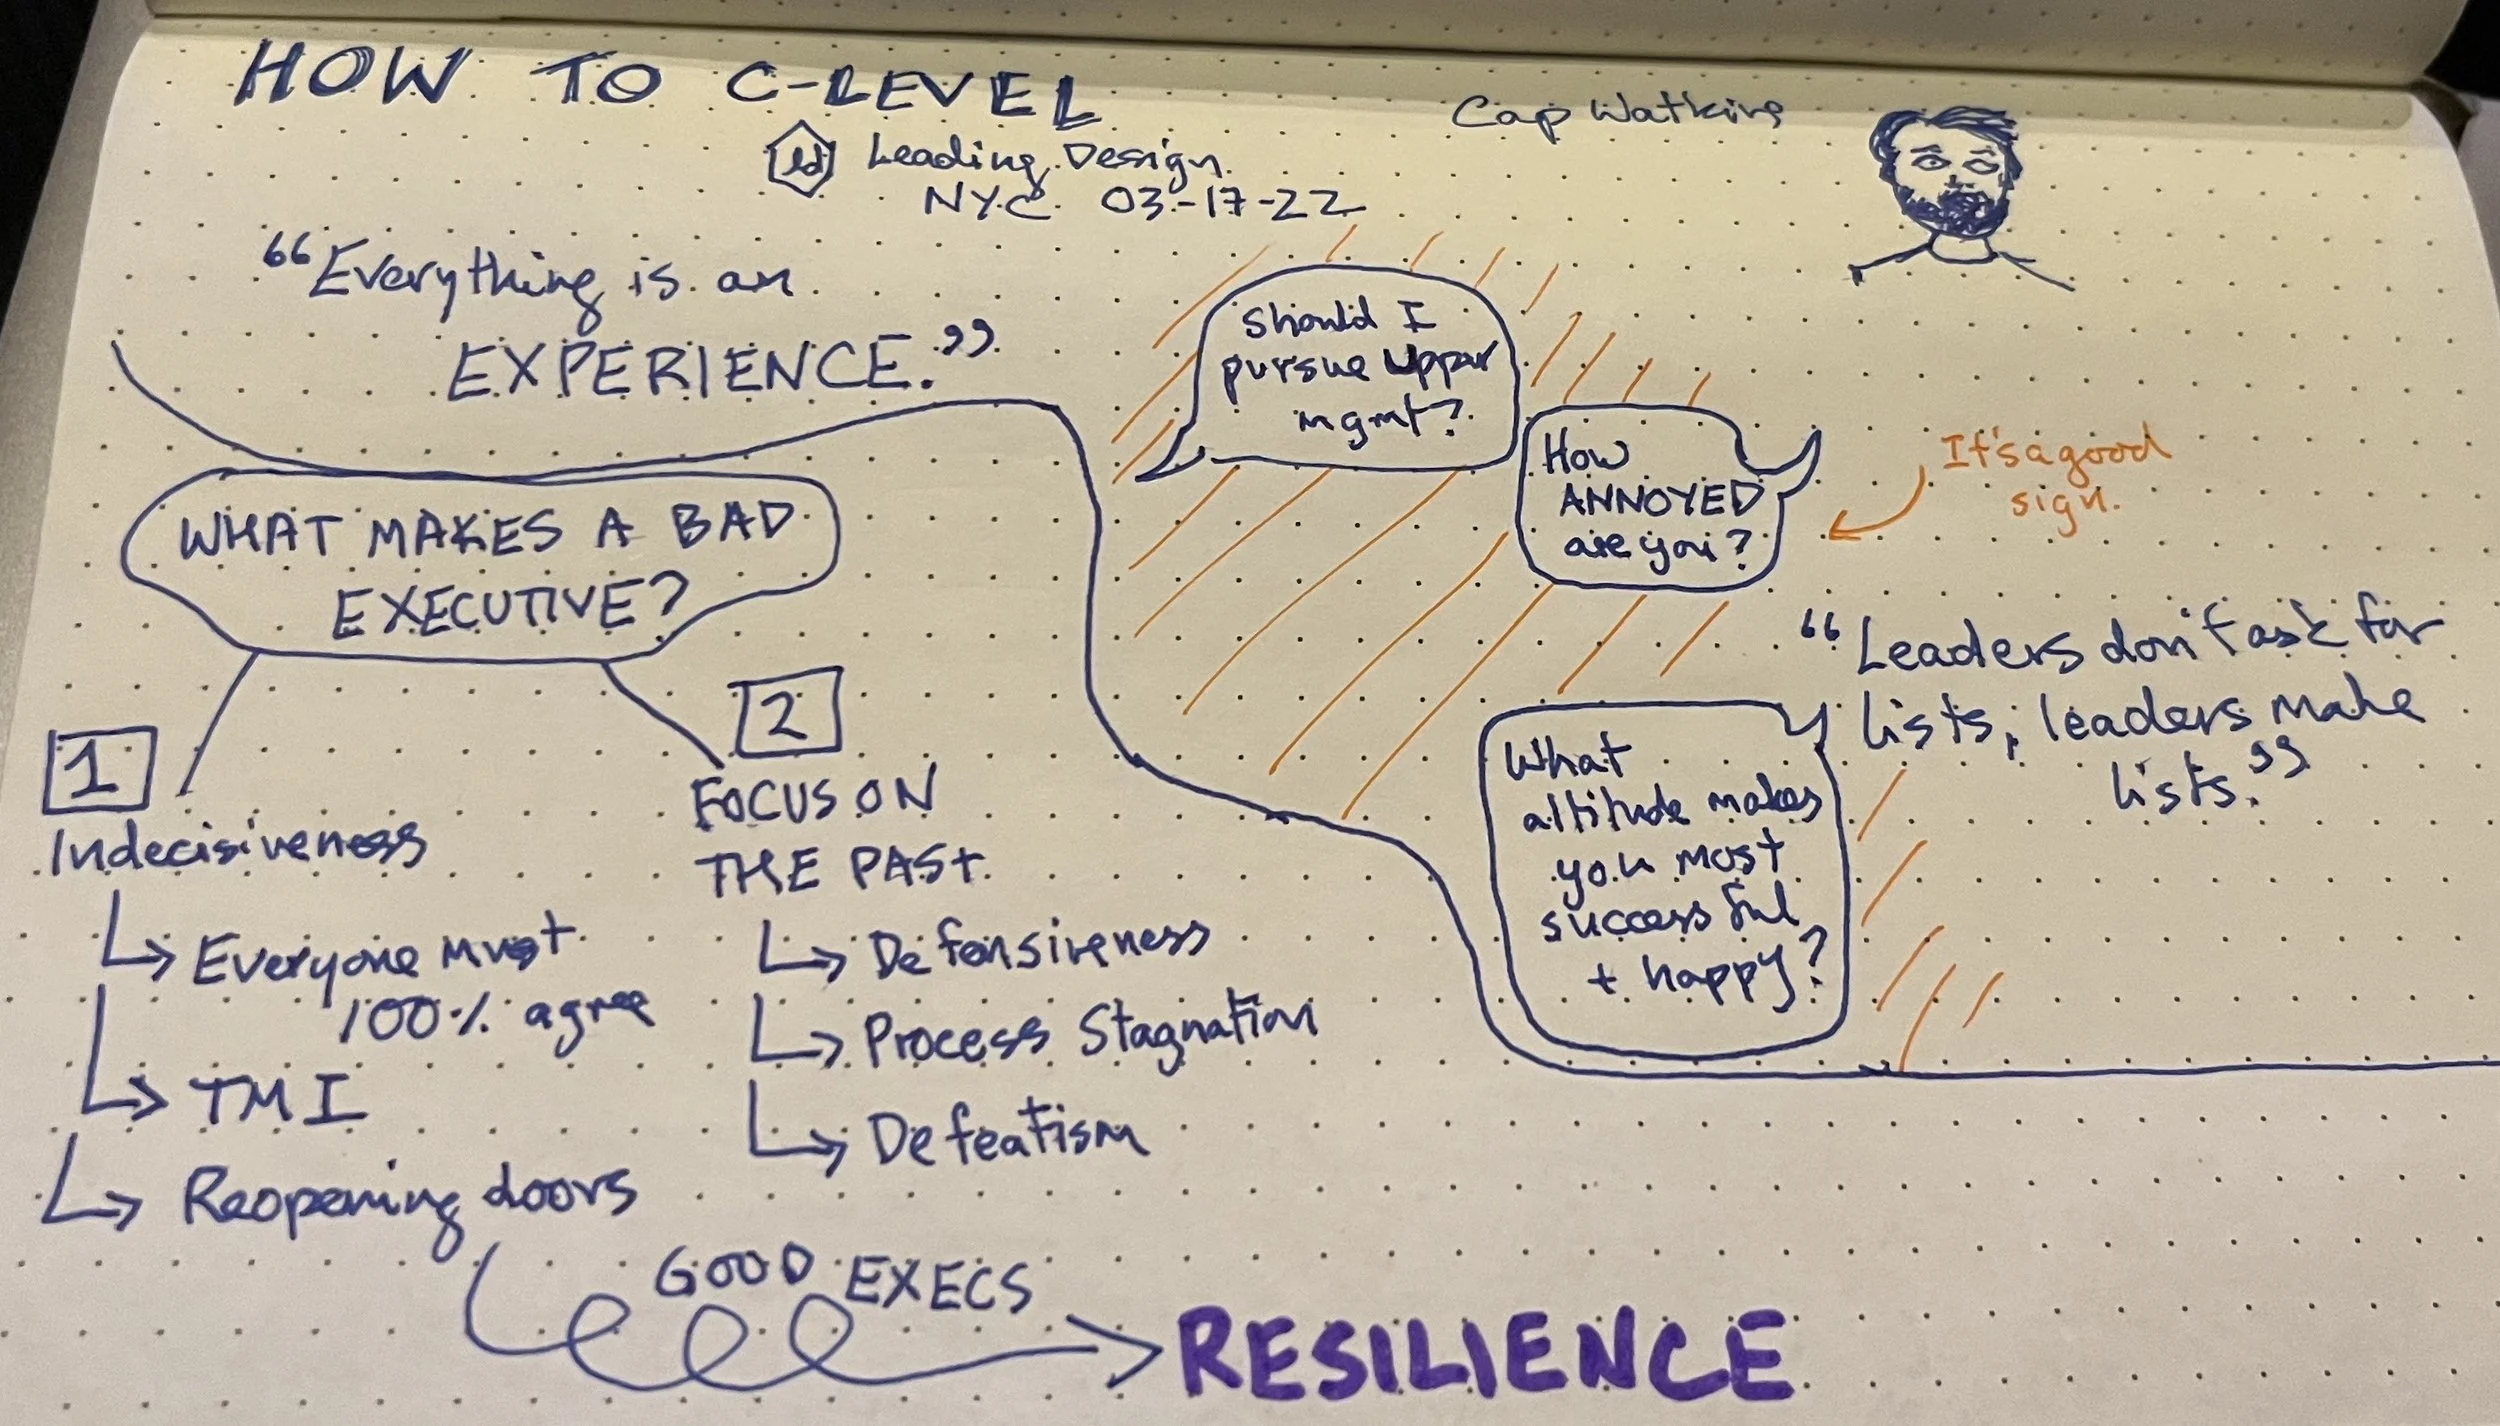 HOW TO C-LEVEL
Cap Watkins
ld Leading Design
NYC 03-17-22
“Everything is an
EXPERIENCE.”
Should I
pursue upper
mgmt?
How
ANNOYED
are you?
It's a good
sign.
“Leaders don't ask for
lists, leaders make
lists.”
What
altitude makes
you most
successful
+ happy?
WHAT MAKES A BAD
EXECUTIVE?
1
Indecisiveness
Everyone must
100% agree
TMI
Reopening doors
2
FOCUS ON
THE PAST
Defensiveness
Process Stagnation
Defeatism
GOOD EXECS
RESILIENCE